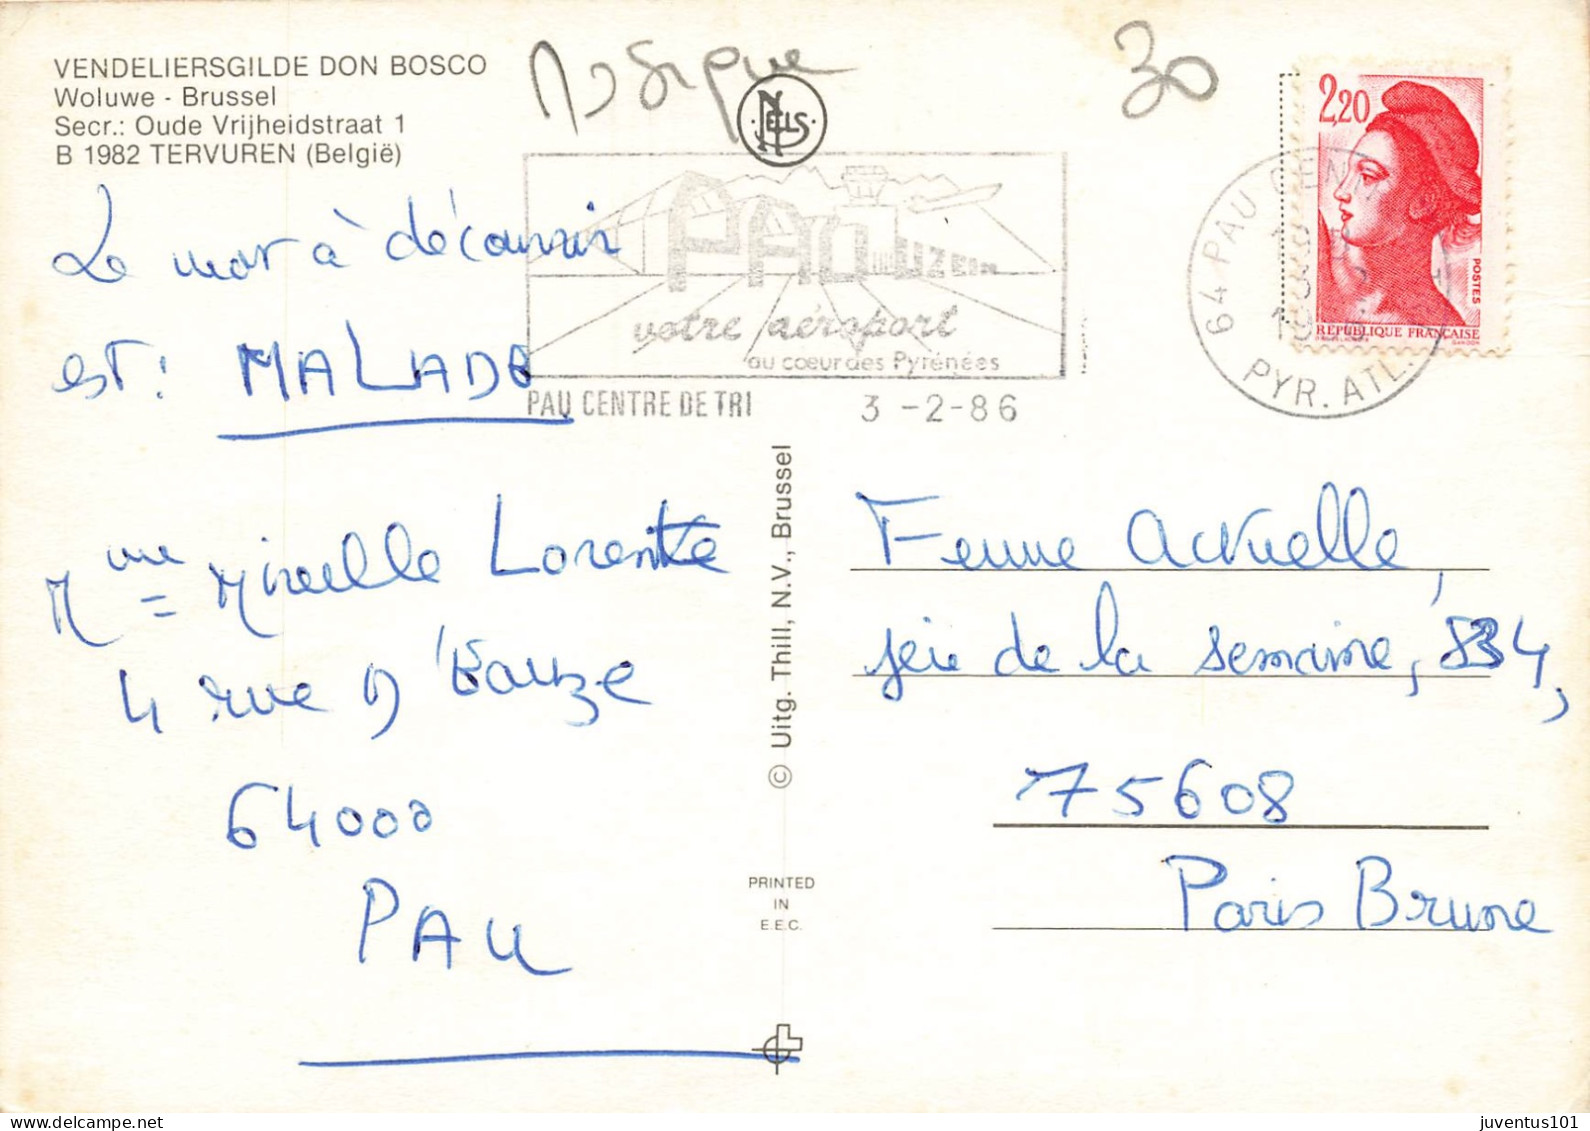 VENDELIERSGILDE DON BOSCO
Woluwe - Brussel
Secr.: Oude Vrijheidstraat 1
B 1982 TERVUREN (België)
Musique
30
NELS
2,20
POSTES
REPUBLIQUE FRANÇAISE
64 PAU CENT
PYR. ATL.
PAU UZEIN
votre aéroport
au coeur des Pyrénées
PAU CENTRE DE TRI 3 -2-86
Le mot à découvrir
est : MALADE
Mme Mireille Lorente
4 rue D'Eauze
64000
PAU
© Uitg. Thill, N.V., Brussel
PRINTED
IN
E.E.C.
Femme Actuelle,
jeu de la semaine, 834,
75608
Paris Brune
juventus101